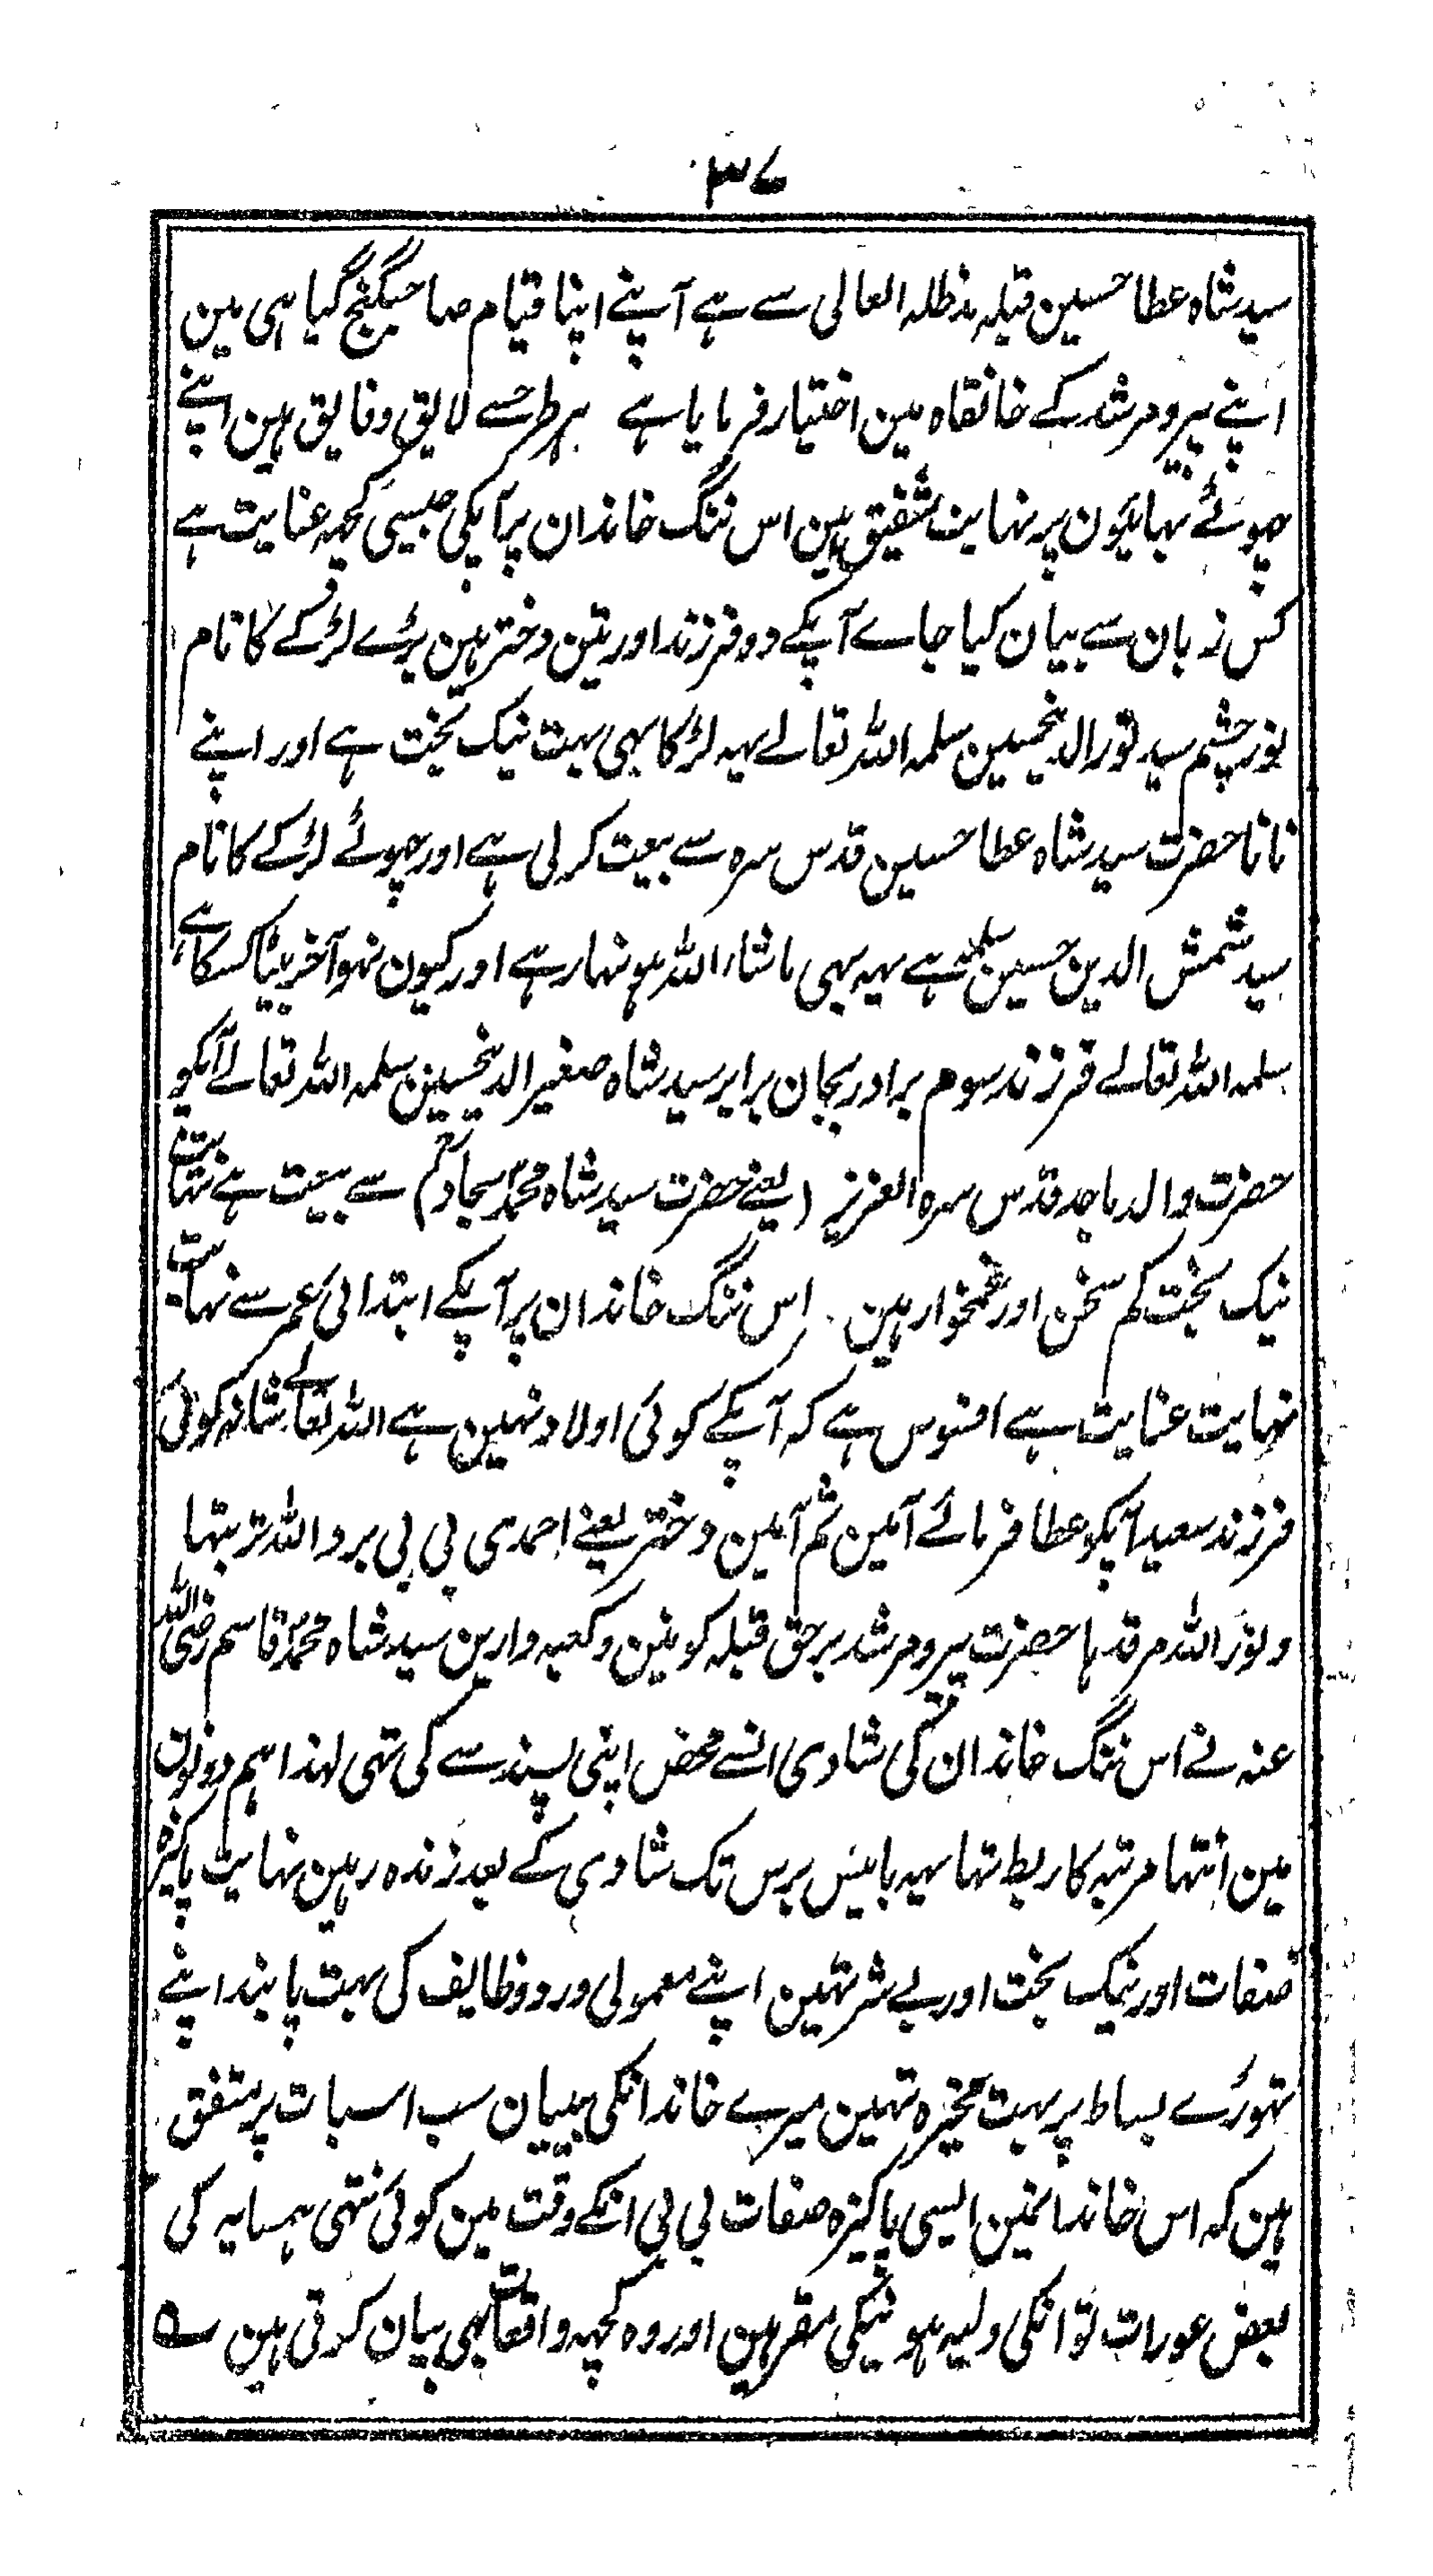 ۳۷
سید شاہ عطا حسین قبلہ مدظلہ العالی سے ہے آپنے اپنا قیام صاحبگنج گیا ہی مین
اپنے پیر و مرشد کے خانقاہ مین اختیار فرمایا ہے ہر طرحسے لایق و فایق ہین اپنے
چھوٹے بہایئون پر نہایت شفیق ہین اس ننگ خاندان پر آپکی جیسی کچہہ عنایت ہے
کس زبان سے بیان کیا جاے آپکے دو فرزند اور تین دختر ہین بڑے لڑکے کا نام
نور چشم سید نور الدینحسین سلمہ اللہ تعالے یہہ لڑکا بہی بہت نیک بخت ہے اور اپنے
نانا حضرت سید شاہ عطا حسین قدس سرہ سے بیعت کر لی ہے اور چھوٹے لڑکے کا نام
سید شمش الدین حسین سلمہ ہے یہہ بہی ماشاء اللہ ہونہار ہے اور کیون نہو آخر بیٹا کسکا ہے
سلمہ اللہ تعالے فرزند سوم برادر بجان برابر سید شاہ صغیر الدینحسین سلمہ اللہ تعالے آپکو
حضرت والد ماجد قدس سرہ العزیز (یعنے حضرت سید شاہ محمد سجادؒ) سے بیعت ہے نہایت
نیک بخت کم سخن اور غمخوار ہین ۔ اس ننگ خاندان پر آپکے ابتدائی عمر سے نہایت
نہایت عنایت ہے افسوس ہے کہ آپکے کوئی اولاد نہین ہے اللہ تعالے شانہ کوئی
فرزند سعید آپکو عطا فرمائے آمین ثم آمین دختر یعنے احمدی بی بی برد اللہ تربتہا
و نور اللہ مرقدہا حضرت پیر و مرشد برحق قبلہ کونین و کعبہ دارین سید شاہ محمد قاسم رضی اللہ
عنہ نے اس ننگ خاندان کی شادی انسے محض اپنی پسند سے کی تہی لہذا ہم دونون
مین انتہا مرتبہ کا ربط تہا یہہ بائیس برس تک شادی کے بعد زندہ رہین نہایت پاکیزہ
صفات اور نیک بخت اور بے شر تہین اپنے معمولی ورد و وظایف کی بہت پابند اپنے
تہوڑے بساط پر بہت مخیرہ تہین میرے خاندانکی بیبیان سب اسبات پر متفق
ہین کہ اس خاندانمین ایسی پاکیزہ صفات بی بی انکے وقت مین کوئی نتہی ہمسایہ کی
بعض عورات تو انکی ولیہ ہونیکی مقر ہین اور وہ کچہہ واقعات بہی بیان کرتی ہین